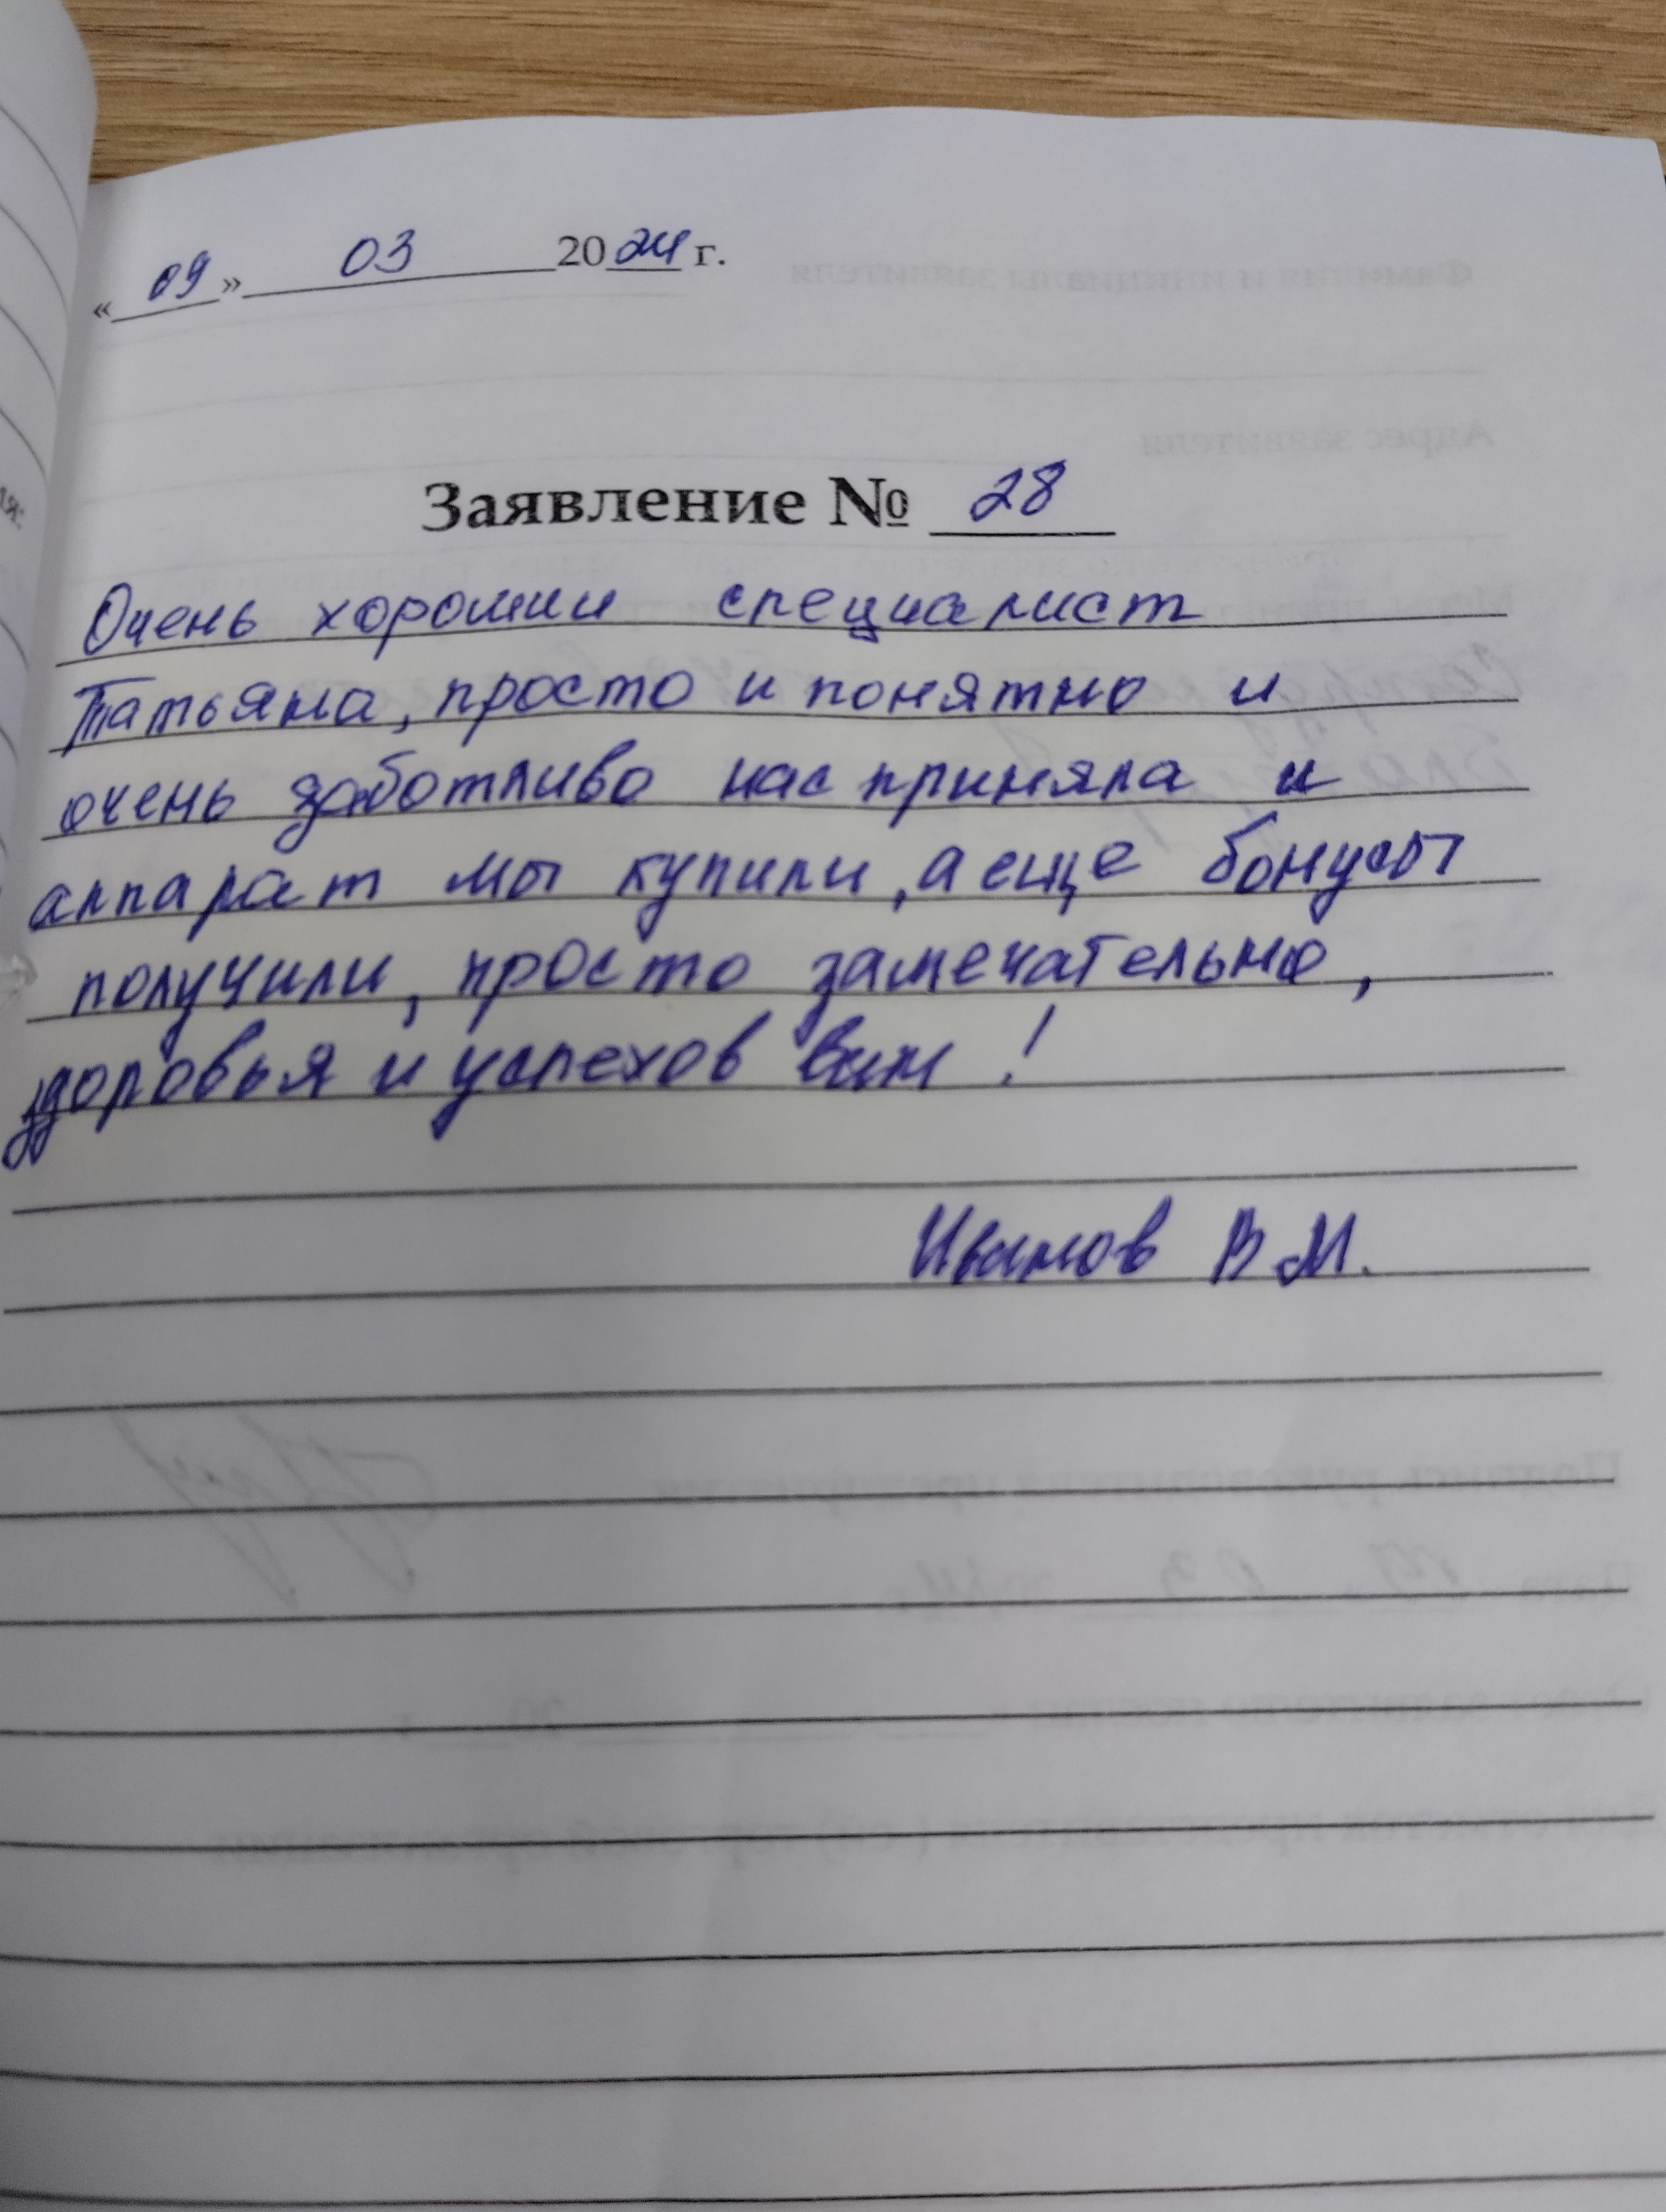 « 09 » 03 2024 г.
Заявление № 28
Очень хороший специалист
Татьяна, просто и понятно и
очень заботливо нас приняла и
аппарат мы купили, а еще бонусы
получили, просто замечательно,
здоровья и успехов Вам !
Иванов В М.